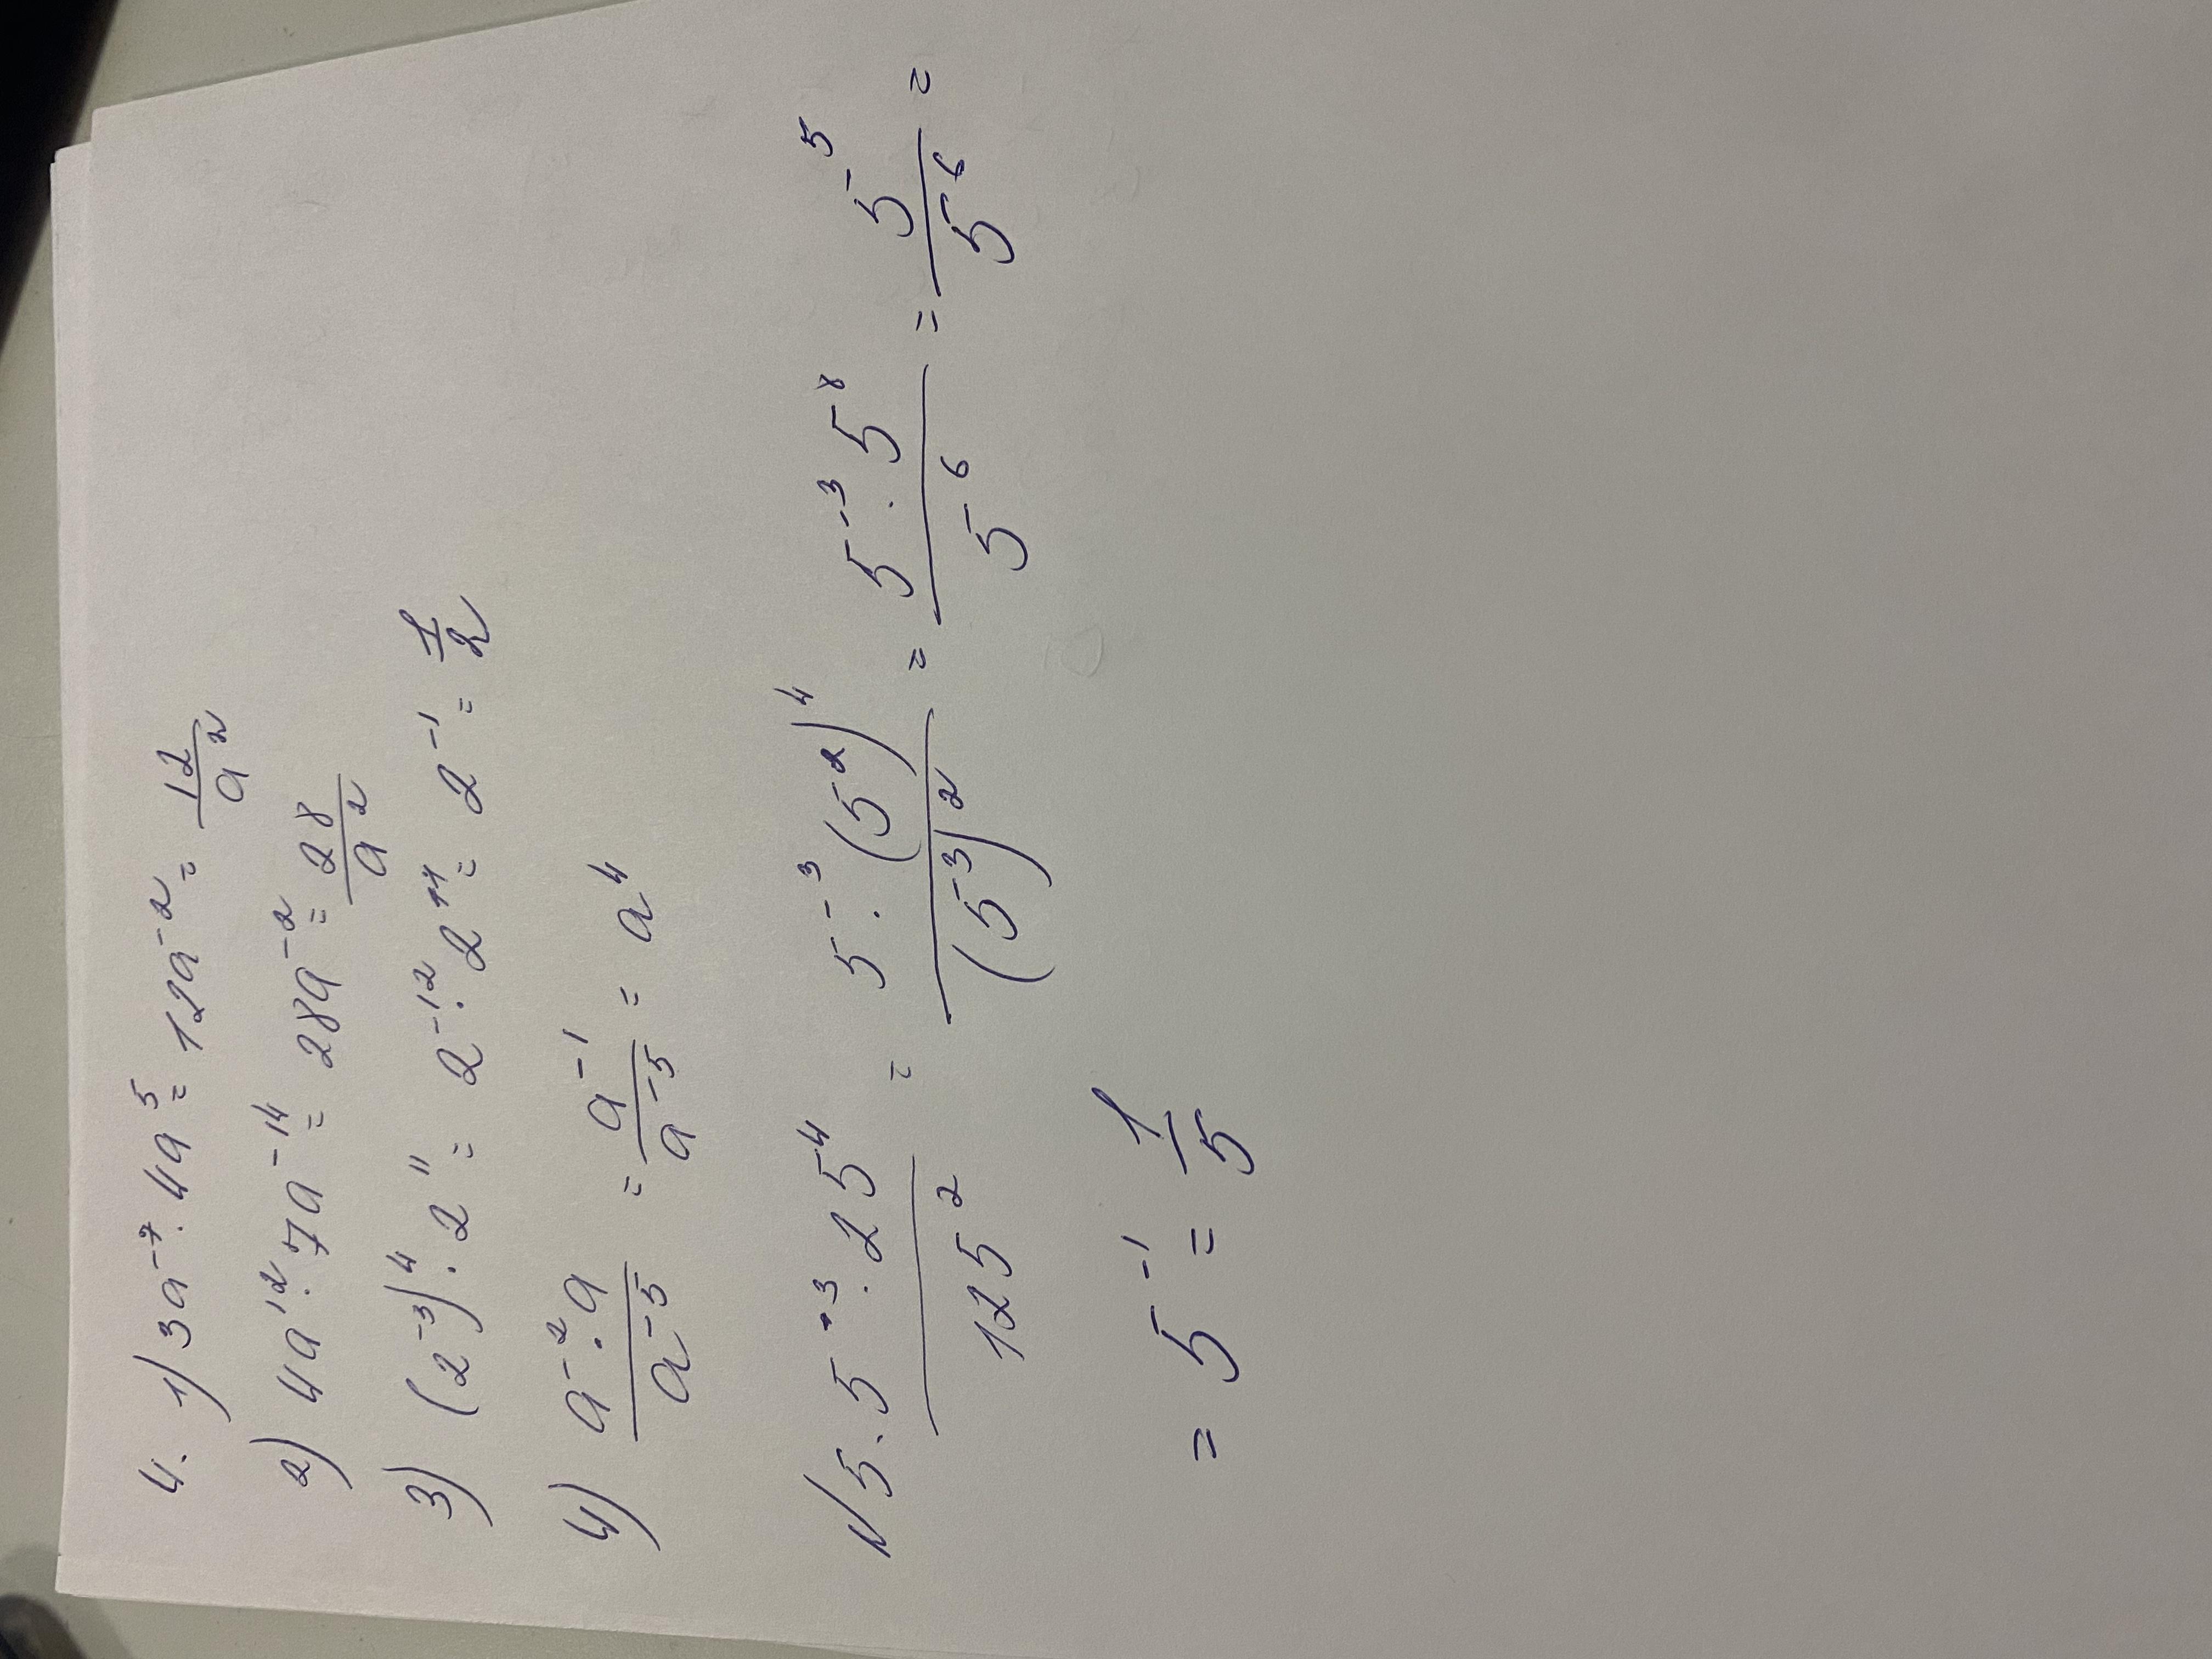 4. 1) 3a⁻⁷ · 4a⁵ = 12a⁻² = 12/a²
2) 4a¹² · 7a⁻¹⁴ = 28a⁻² = 28/a²
3) (2⁻³)⁴ · 2¹¹ = 2⁻¹² · 2¹¹ = 2⁻¹ = 1/2
4) (a⁻² · a)/a⁻⁵ = a⁻¹/a⁻⁵ = a⁴
N5. (5⁻³ · 25⁴)/125² = (5⁻³ · (5²)⁴)/(5³)² = (5⁻³ · 5⁸)/5⁶ = 5⁵/5⁶ =
= 5⁻¹ = 1/5